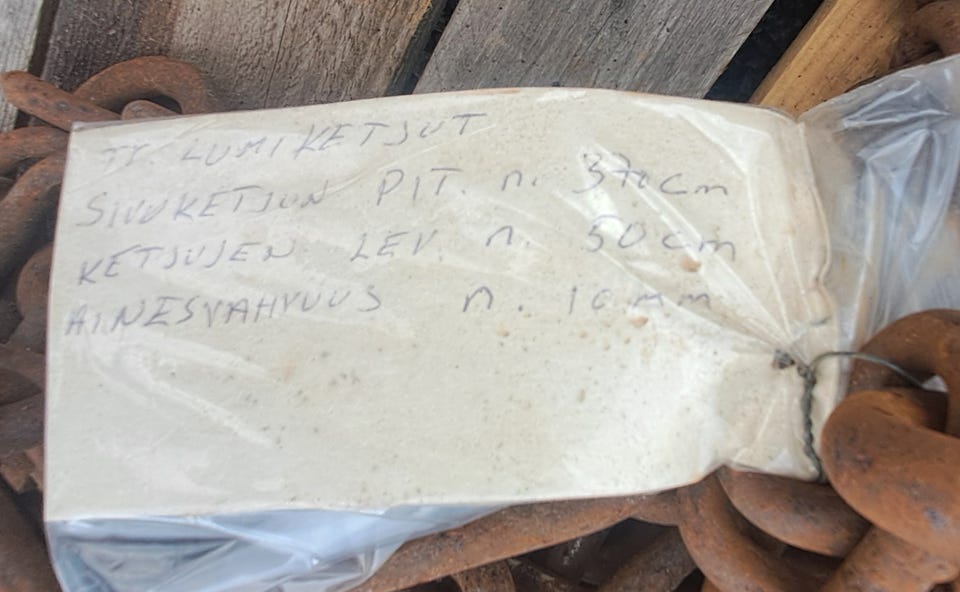 TT. LUMIKETJUT
SIVUKETJUN PIT. n. 370cm
KETJUJEN LEV. n. 50cm
AINESVAHVUUS n. 10mm